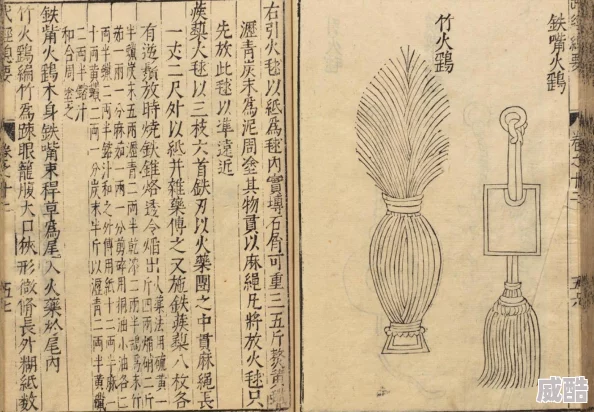 鐵嘴火鷂
竹火鷂
卷之十二
右引火毬以紙為毬內實塼石屑可重三五斤熬黃蠟
瀝青炭末為泥周塗其物貫以麻繩凡將放火毬只
先放此毬以準遠近
蒺蔾火毬以三枝六首鐵刃以火藥團之中貫麻繩長
一丈二尺外以紙并雜藥傅之又施鐵蒺蔾八枚各
有逆鬚放時燒鐵錐烙透令焰出火藥法用硫黃一
斤四兩焰硝二斤
半麄炭末五兩瀝青二兩半乾漆二兩半搗為末竹
茹一兩一分麻茹一兩一分剪碎用桐油小油各二
兩半蠟二兩半鎔汁和之外傅用紙十二兩半麻一十
兩黃丹一兩一分炭末半斤以瀝青二兩半黃蠟
二兩半鎔汁
和合周塗之
鐵嘴火鷂木身鐵嘴束稈草為尾入火藥於尾內
竹火鷂編竹為疎眼籠腹大口狹形微脩長外糊紙數
武經總要
卷之十二
威酷